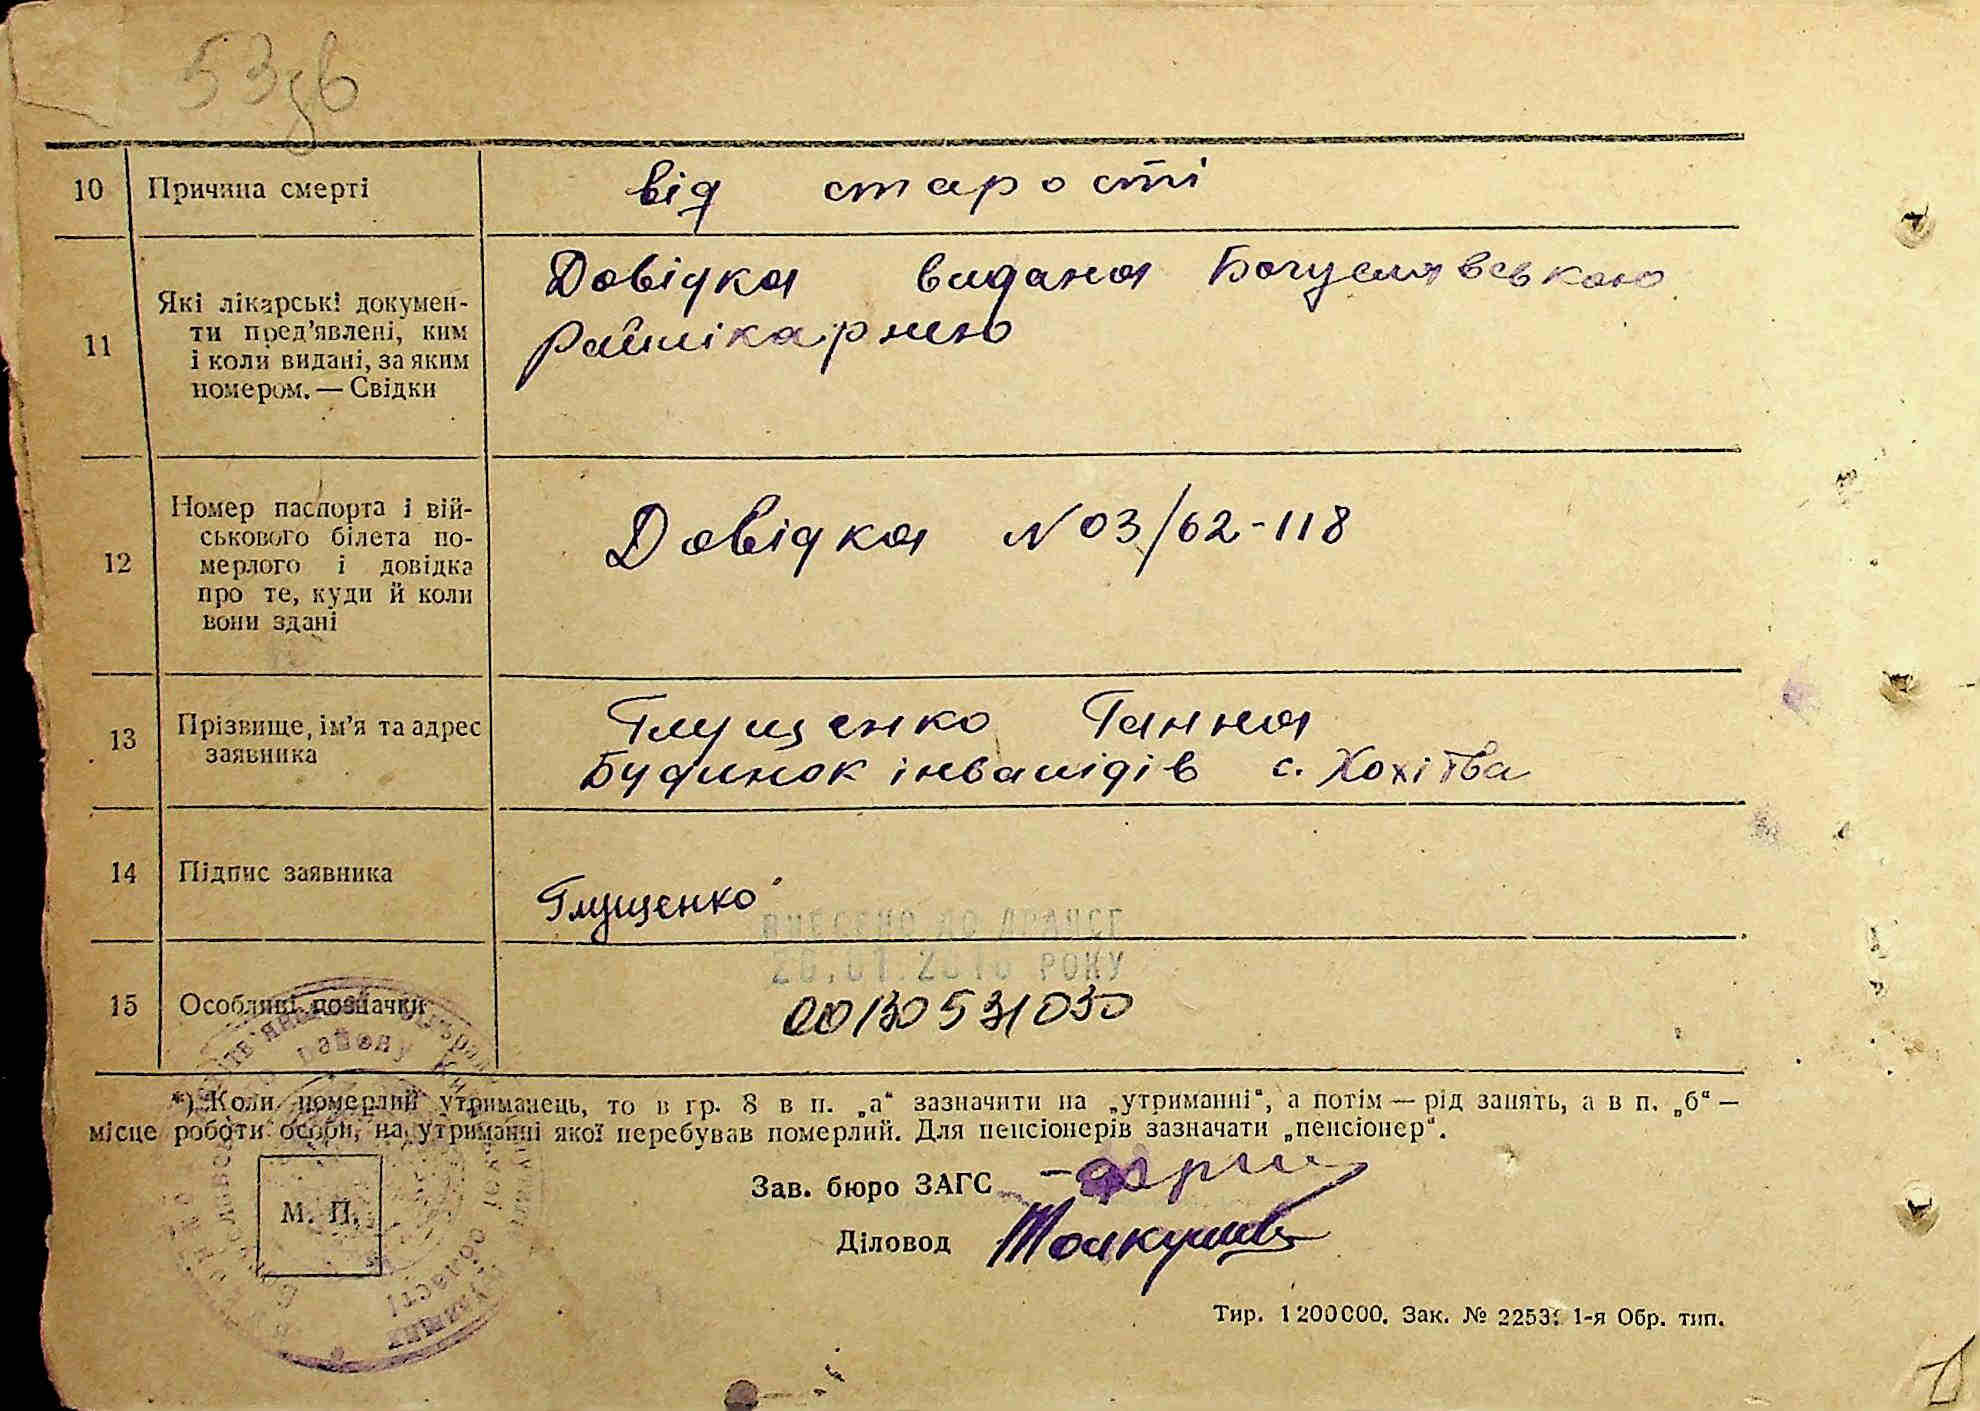 53зв
10 Причина смерті від старості
11 Які лікарські докумен-
ти пред'явлені, ким
і коли видані, за яким
номером. — Свідки
Довідка видана Богуславською
райлікарнею
12 Номер паспорта і вій-
ськового білета по-
мерлого і довідка
про те, куди й коли
вони здані
Довідка N 03/62-118
13 Прізвище, ім'я та адрес
заявника
Глущенко Ганна
Будинок інвалідів с. Хохітва
14 Підпис заявника
Глущенко
ВНЕСЕНО ДО ДРАЦСГ
26.01.2010 РОКУ
15 Особливі позначки
00130531030
*) Коли померлий утриманець, то в гр. 8 в п. „а“ зазначити на „утриманні“, а потім — рід занять, а в п. „б“ —
місце роботи особи, на утриманні якої перебував померлий. Для пенсіонерів зазначати „пенсіонер“.
М. П.
району
області
Зав. бюро ЗАГС
Діловод
Тир. 1200000. Зак. № 2253. 1-я Обр. тип.